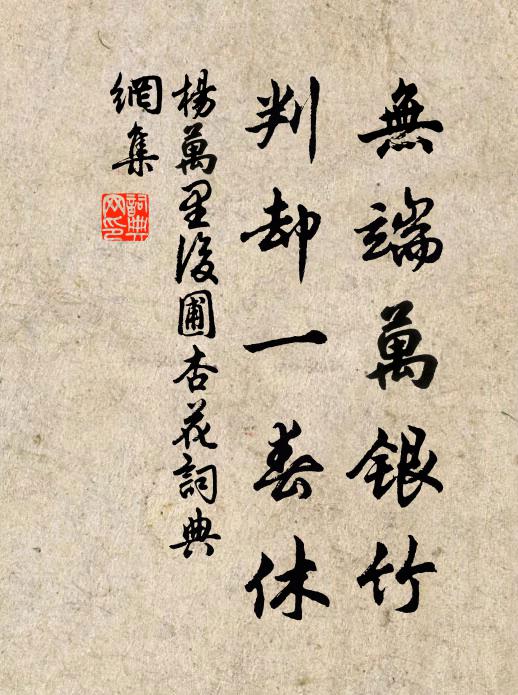 無端萬銀竹
判却一春休
楊萬里後圃杏花詞典
網集
詞典網印